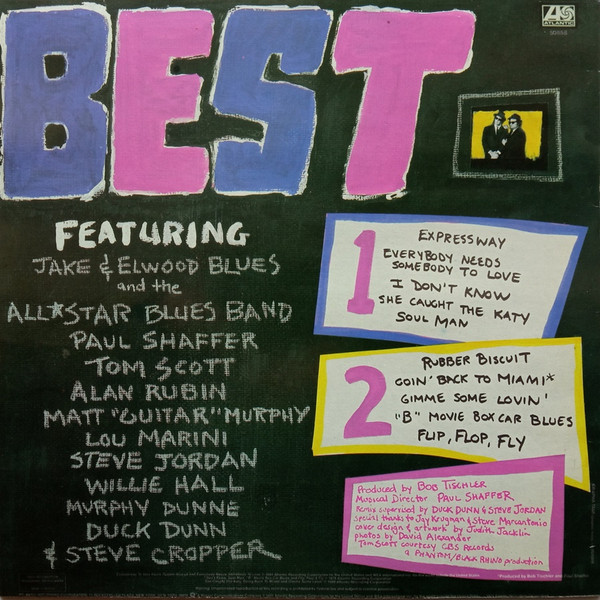 BEST
ATLANTIC
FEATURING
JAKE & ELWOOD BLUES
and the
ALL★STAR BLUES BAND
PAUL SHAFFER
TOM SCOTT
ALAN RUBIN
MATT "GUITAR" MURPHY
LOU MARINI
STEVE JORDAN
WILLIE HALL
MURPHY DUNNE
DUCK DUNN
& STEVE CROPPER
1
EXPRESSWAY
EVERYBODY NEEDS
SOMEBODY TO LOVE
I DON'T KNOW
SHE CAUGHT THE KATY
SOUL MAN
2
RUBBER BISCUIT
GOIN' BACK TO MIAMI*
GIMME SOME LOVIN'
"B" MOVIE BOX CAR BLUES
FLIP, FLOP, FLY
Produced by BOB TISCHLER
Musical Director PAUL SHAFFER
Remix supervised by DUCK DUNN & STEVE JORDAN
Special thanks to Jay Krugman & Steve Marcantonio
cover design & artwork by Judith Jacklin
photos by David Alexander
Tom Scott courtesy CBS Records
a PHANTM/BLACK RHINO production
*Produced by Bob Tischler and Paul Shaffer